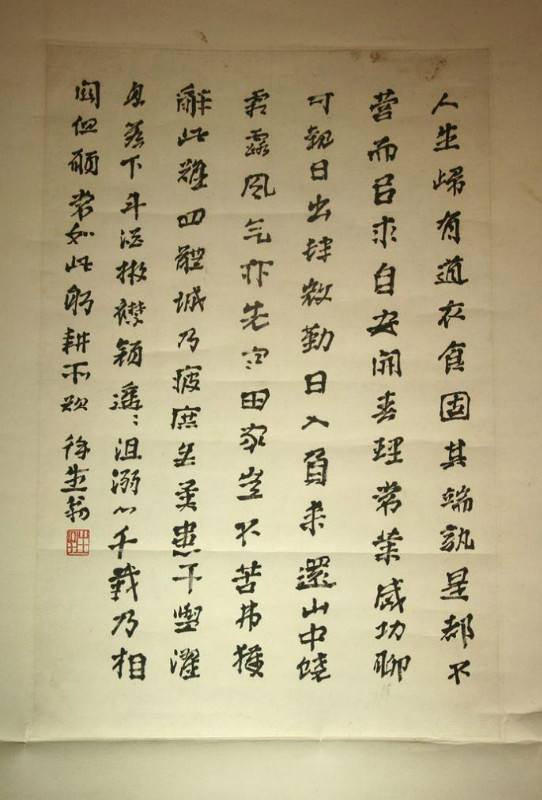 人生歸有道衣食固其端孰是都不
營而㠯求自安開春理常業歲功聊
可觀日出肆微勤日入負耒還山中饒
霜露風气亦先寒田家豈不苦弗獲
辭此難四體誠乃疲庶无異患干盥濯
息簷下斗酒散襟顏遥〻沮溺心千載乃相
關但願常如此躬耕不歎 徐生翁